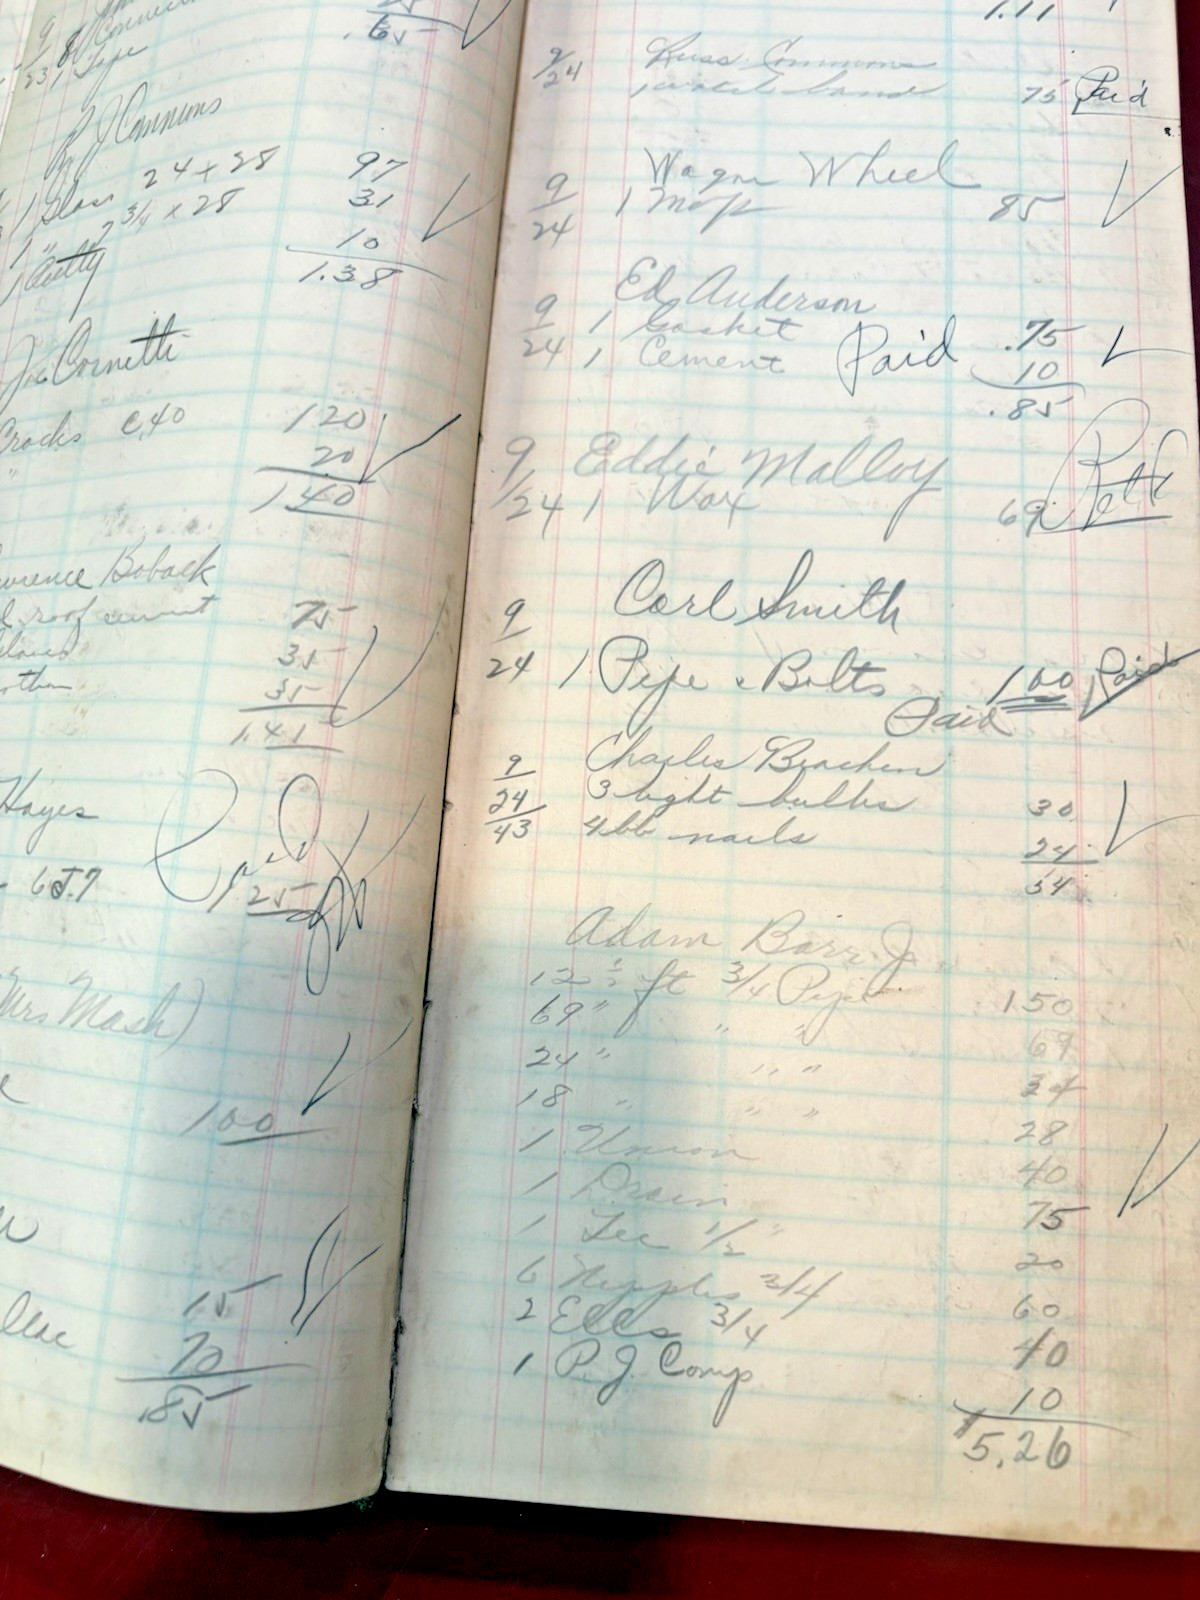 9 8
23 1 Tape
.65
R J Commons
1 Glass 24 x 28 97
1 " 7 3/4 x 28 31
1 Putty 10
1.38
Joe Cornetti
Crocks C.40 120
" 20
1 40
Boback
roof cement 75
35
35
1.41
Hayes
Paid
6J.7 25
Mrs Mash)
100
15
70
.85
1.11
9/24 Russ Commons
1 watch band 75 Paid
9 Wagon Wheel
24 1 Mop 85
Ed Anderson
9 1 Gasket .75
24 1 Cement Paid 10
.85
9 Eddie Malloy
/24 1 Wax 69
9 Carl Smith
24 1 Pipe & Bolts 1 00 Paid
Paid
9 Charles
24 3 light bulbs 30
43 4 lb nails 24
54
Adam Barr Jr
ft 3/4 Pipe 150
69 " " " 69
24 " " " 34
18 " " " 28
1 Union 40
1 Drain 75
1 Tee 1/2 " 20
6 Nipples 3/4 60
2 Ells 3/4 40
1 P.J. Comp 10
5.26